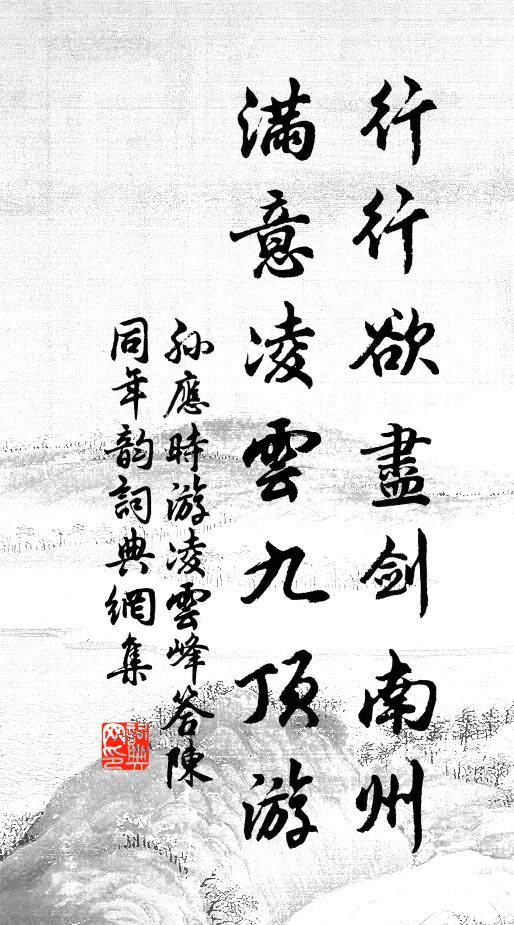 行行欲盡剑南州
满意凌雲九顶游
孙應時游凌雲峰答陳
同年韵詞典網集